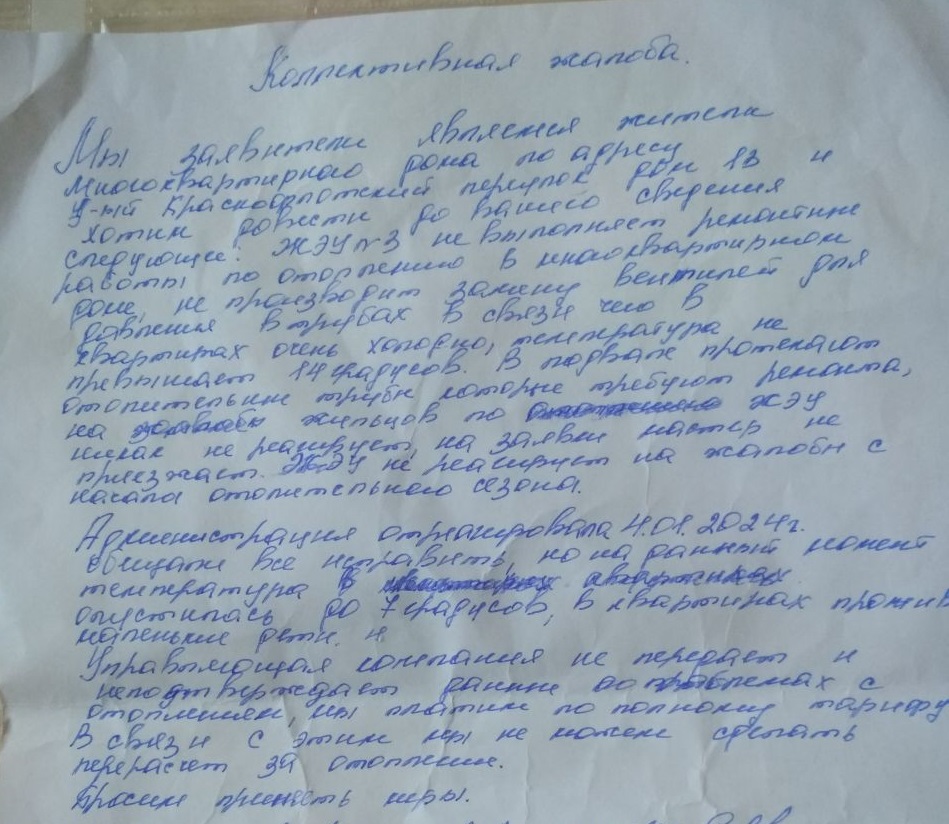 Коллективная жалоба.
Мы заявители являемся жители
многоквартирного дома по адресу
4-ый Краснофлотский переулок дом 13 и
хотим довести до вашего сведения
следующие: ЖЭУ №3 не выполняет ремонтные
работы по отоплению в многоквартирном
доме, не производит замену вентилей для
давления в трубах в связи чего в
квартирах очень холодно, температура не
превышает 14 градусов. В подвале протекают
отопительные трубы которые требуют ремонта,
на жильцов по ЖЭУ
никак не реагирует, на заявки мастер не
приезжает. ЖЭУ не реагирует на жалобы с
начала отопительного сезона.
Администрация отреагировала 4.01.2024г.
Обещали все исправить, но на данный момент
температура в квартирах
опустилась до 7 градусов, в квартирах прожив
маленькие дети. и
Управляющая компания не передает и
неподтверждает данные о проблемах с
отоплением, мы платим по полному тарифу
В связи с этим мы не можем сделать
перерасчет за отопление.
Просим принять меры.